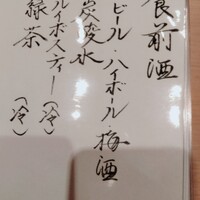 食前酒
ビール・ハイボール・梅酒
炭酸水
ルイボスティー（冷）
緑茶（冷）